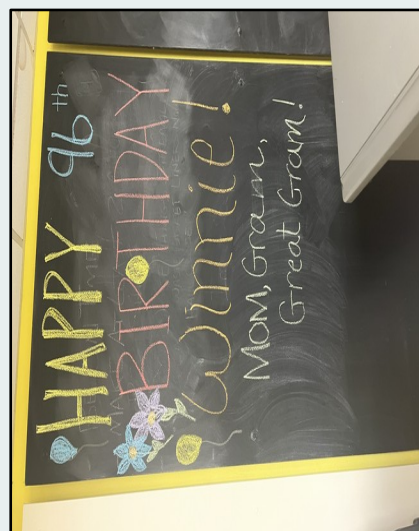 HAPPY 96th
BIRTHDAY
Winnie!
Mom, Gram,
Great Gram!